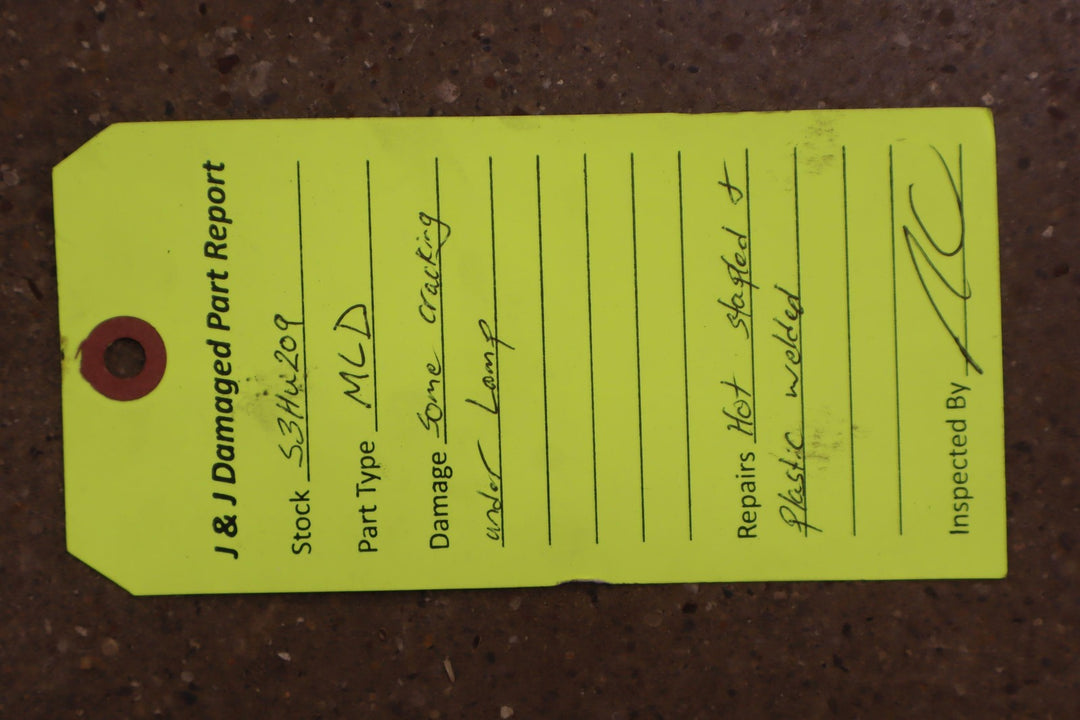 J & J Damaged Part Report
Stock S3Hu209
Part Type MLD
Damage Some cracking
under Lamp
Repairs Hot stapled &
Plastic welded
Inspected By